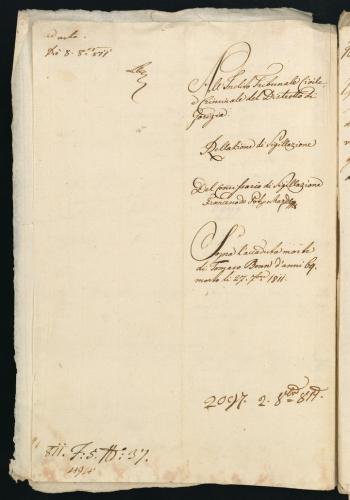 Li 8. 8bre 811
All' Inclito Tribunale Civile,
e Criminale del Distretto di
Gorizia.
Rellazione di Sigillazione
Del Comissario di Sigillazione
Francesco de
Sopra l'accaduta morte
di Tomaso Bonn d'anni 69
morto li 27. 7bre 1811.
2097. 2. 8bre 811.
811. F: 5. No: 37.